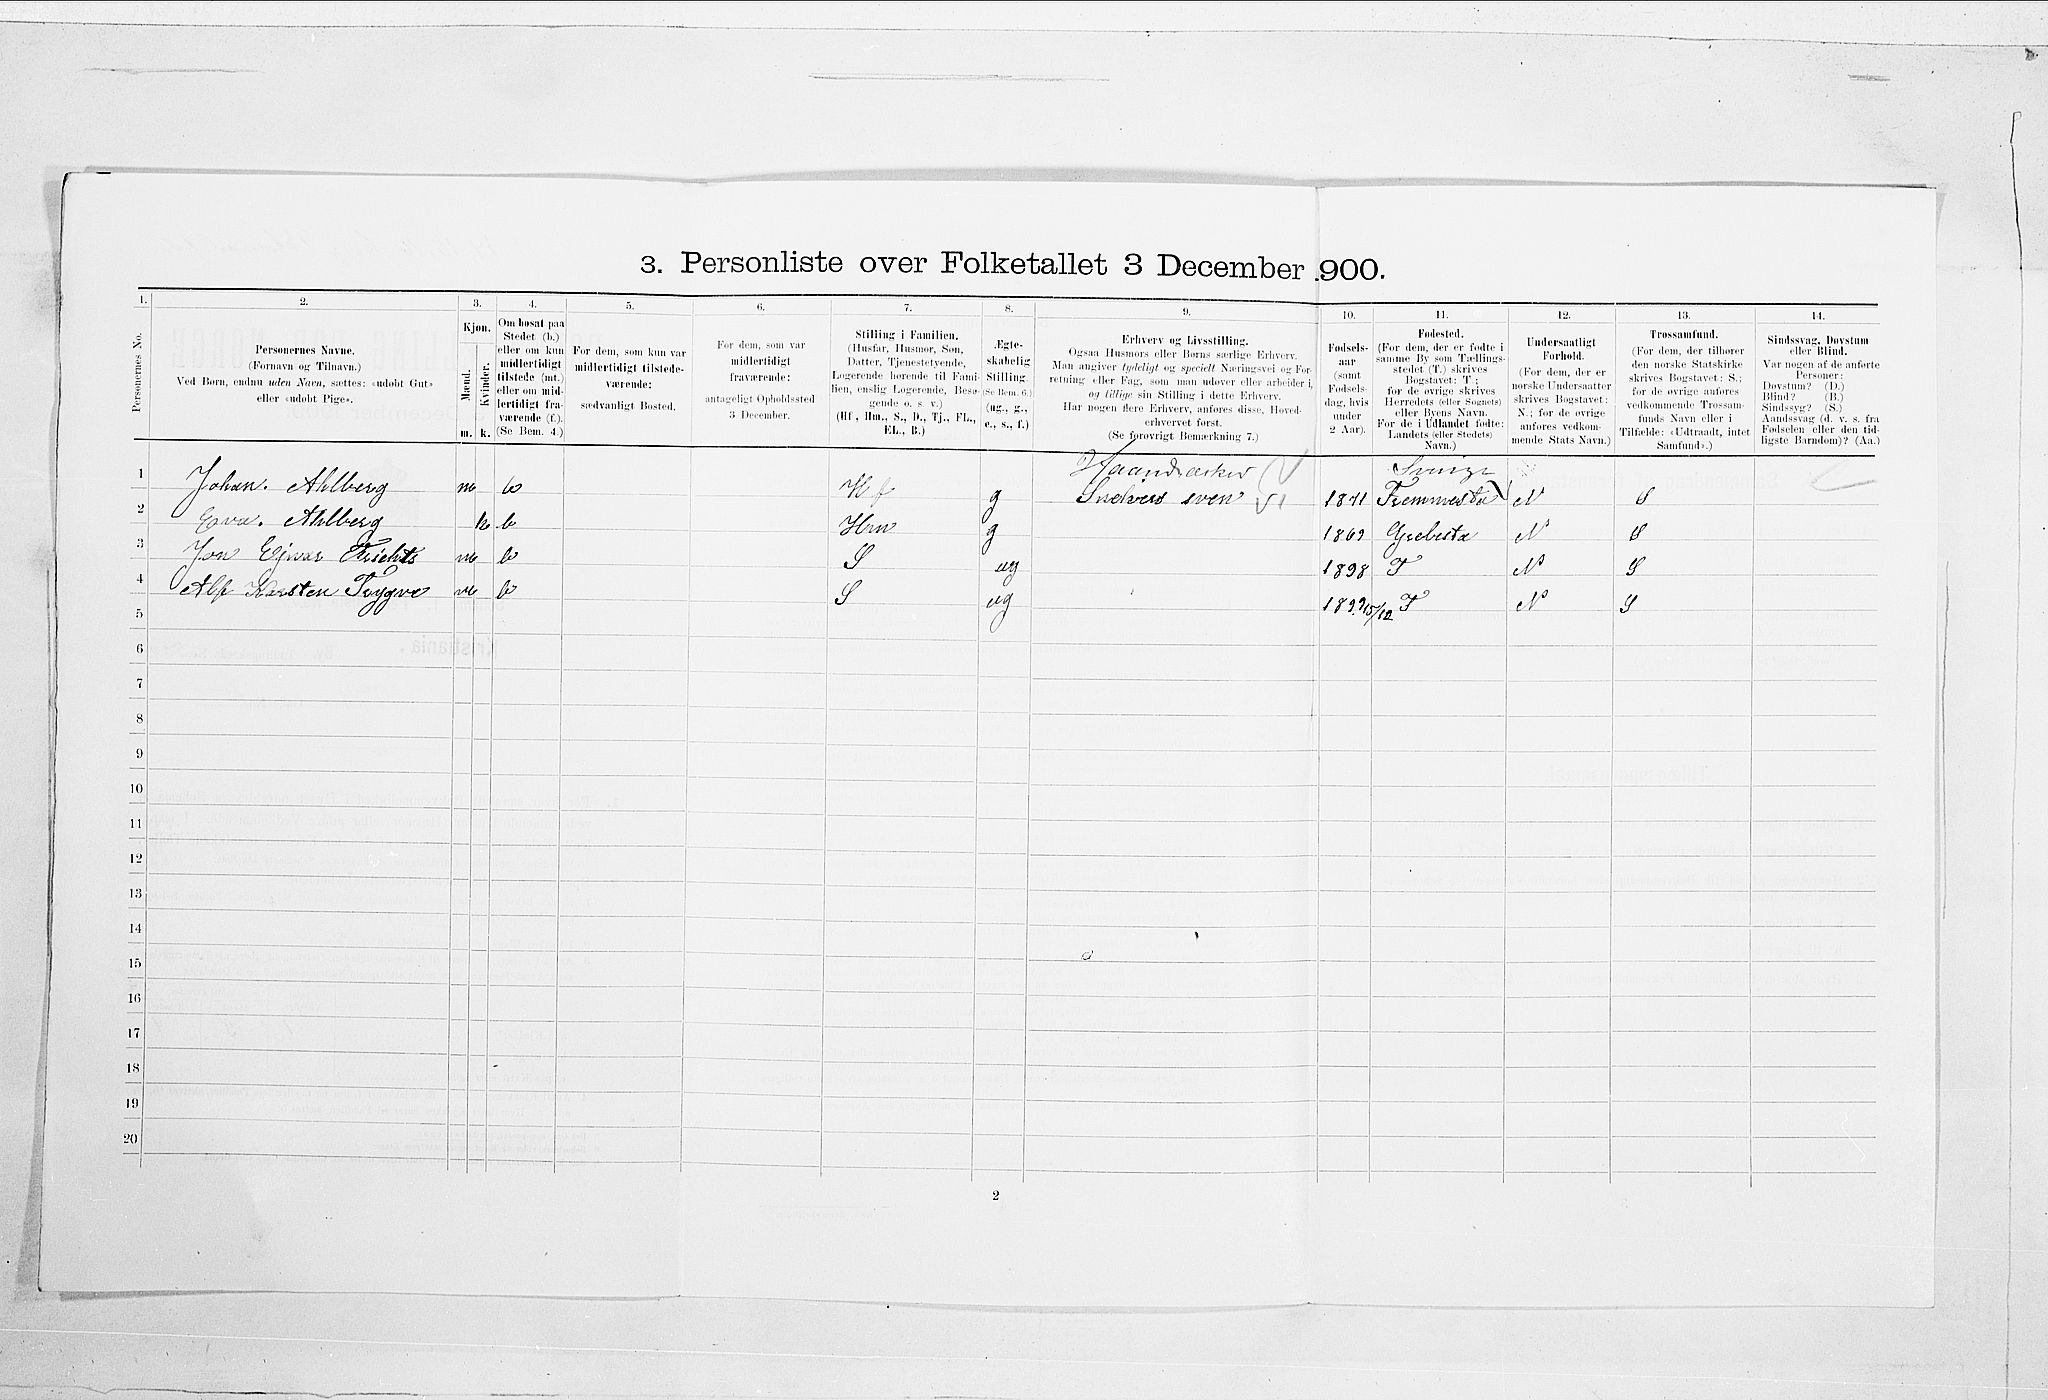 3. Personliste over Folketallet 3 December 1900.
1. 2. 3. 4. 5. 6. 7. 8. 9. 10. 11. 12. 13. 14.
Personernes No.
Personernes Navne.
(Fornavn og Tilnavn.)
Ved Børn, endnu uden Navn, sættes: «udøbt Gut»
eller «udøbt Pige».
Kjøn.
Mænd.
Kvinder.
m. k.
Om bosat paa
Stedet (b.)
eller om kun
midlertidigt
tilstede (mt.)
eller om mid-
lertidigt fra-
værende (f.).
(Se Bem. 4.)
For dem, som kun var
midlertidigt tilstede-
værende:
sædvanligt Bosted.
For dem, som var
midlertidigt
fraværende:
antageligt Opholdssted
3 December.
Stilling i Familien.
(Husfar, Husmor, Søn,
Datter, Tjenestetyende,
Logerende hørende til Fami-
lien, enslig Logerende, Besø-
gende o. s. v.)
(Hf., Hm., S., D., Tj., FL.,
EL., B.)
Ægte-
skabelig
Stilling.
(Se Bem. 6.)
(ug., g.,
e., s., f.)
Erhverv og Livsstilling.
Ogsaa Husmors eller Børns særlige Erhverv.
Man angiver tydeligt og specielt Næringsvei og For-
retning eller Fag, som man udøver eller arbeider i,
og tillige sin Stilling i dette Erhverv.
Har nogen flere Erhverv, anføres disse, Hoved-
erhvervet først.
(Se forøvrigt Bemærkning 7.)
Fødsels-
aar
(samt
Fødsels-
dag, hvis
under
2 Aar).
Fødested.
(For dem, der er fødte i
samme By som Tællings-
stedet (T.) skrives
Bogstavet: T.;
for de øvrige skrives
Herredets (eller Sognets)
eller Byens Navn.
For de i Udlandet fødte:
Landets (eller Stedets)
Navn.)
Undersaatligt
Forhold.
(For dem, der er
norske Undersaatter
skrives Bogstavet:
N.; for de øvrige
anføres vedkom-
mende Stats Navn.)
Trossamfund.
(For dem, der tilhører
den norske Statskirke
skrives Bogstavet: S.;
for de øvrige anføres
vedkommende Trossam-
funds Navn eller i
Tilfælde: «Udtraadt, intet
Samfund».)
Sindssvag, Døvstum
eller Blind.
Var nogen af de anførte
Personer:
Døvstum? (D.)
Blind? (B.)
Sindssyg? (S.)
Aandssvag (d. v. s. fra
Fødselen eller den tid-
ligste Barndom)? (Aa.)
Haandværker Sverige
1 Johan. Ahlberg m b Hf g Snekkersven 1871 N S
2 Eva. Ahlberg k b Hm g 1869 Grebesta N S
3 Jon Ejnar m b S ug 1898 T N S
4 Alf Karsten Trygve m b S ug 1899 15/12 T N S
5
6
7
8
9
10
11
12
13
14
15
16
17
18
19
20
2